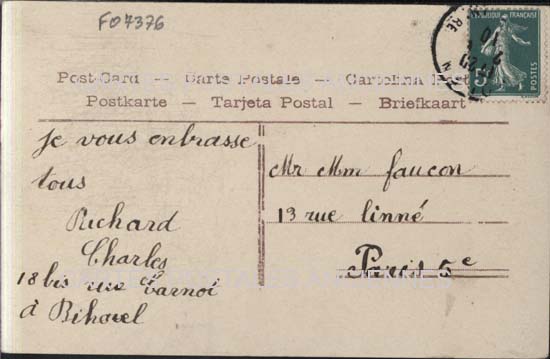 FO7376
RÉPUBLIQUE FRANÇAISE
5c
POSTES
Post Card -- Carte Postale -- Cartolina Post
Postkarte -- Tarjeta Postal -- Briefkaart
je vous enbrasse
tous
Richard
Charles
18 bis rue Carnot
à Bihorel
Mr Mm faucon
13 rue linné
Paris 5e